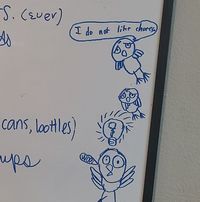 S. (ever)
I do not like chores
ds
cans, bottles)
ups